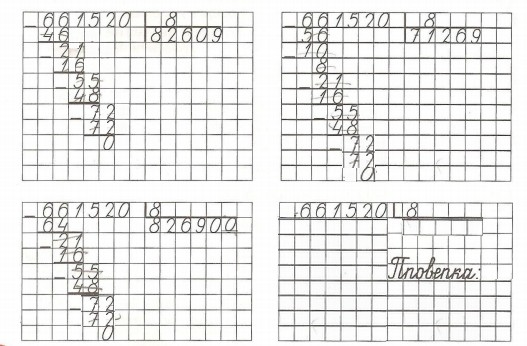 661520 8
46 82609
21
16
55
48
72
72
0
661520 8
56 71269
10
8
21
16
55
48
72
72
0
661520 8
64 826900
21
16
55
48
72
72
0
661520 8
Проверка: